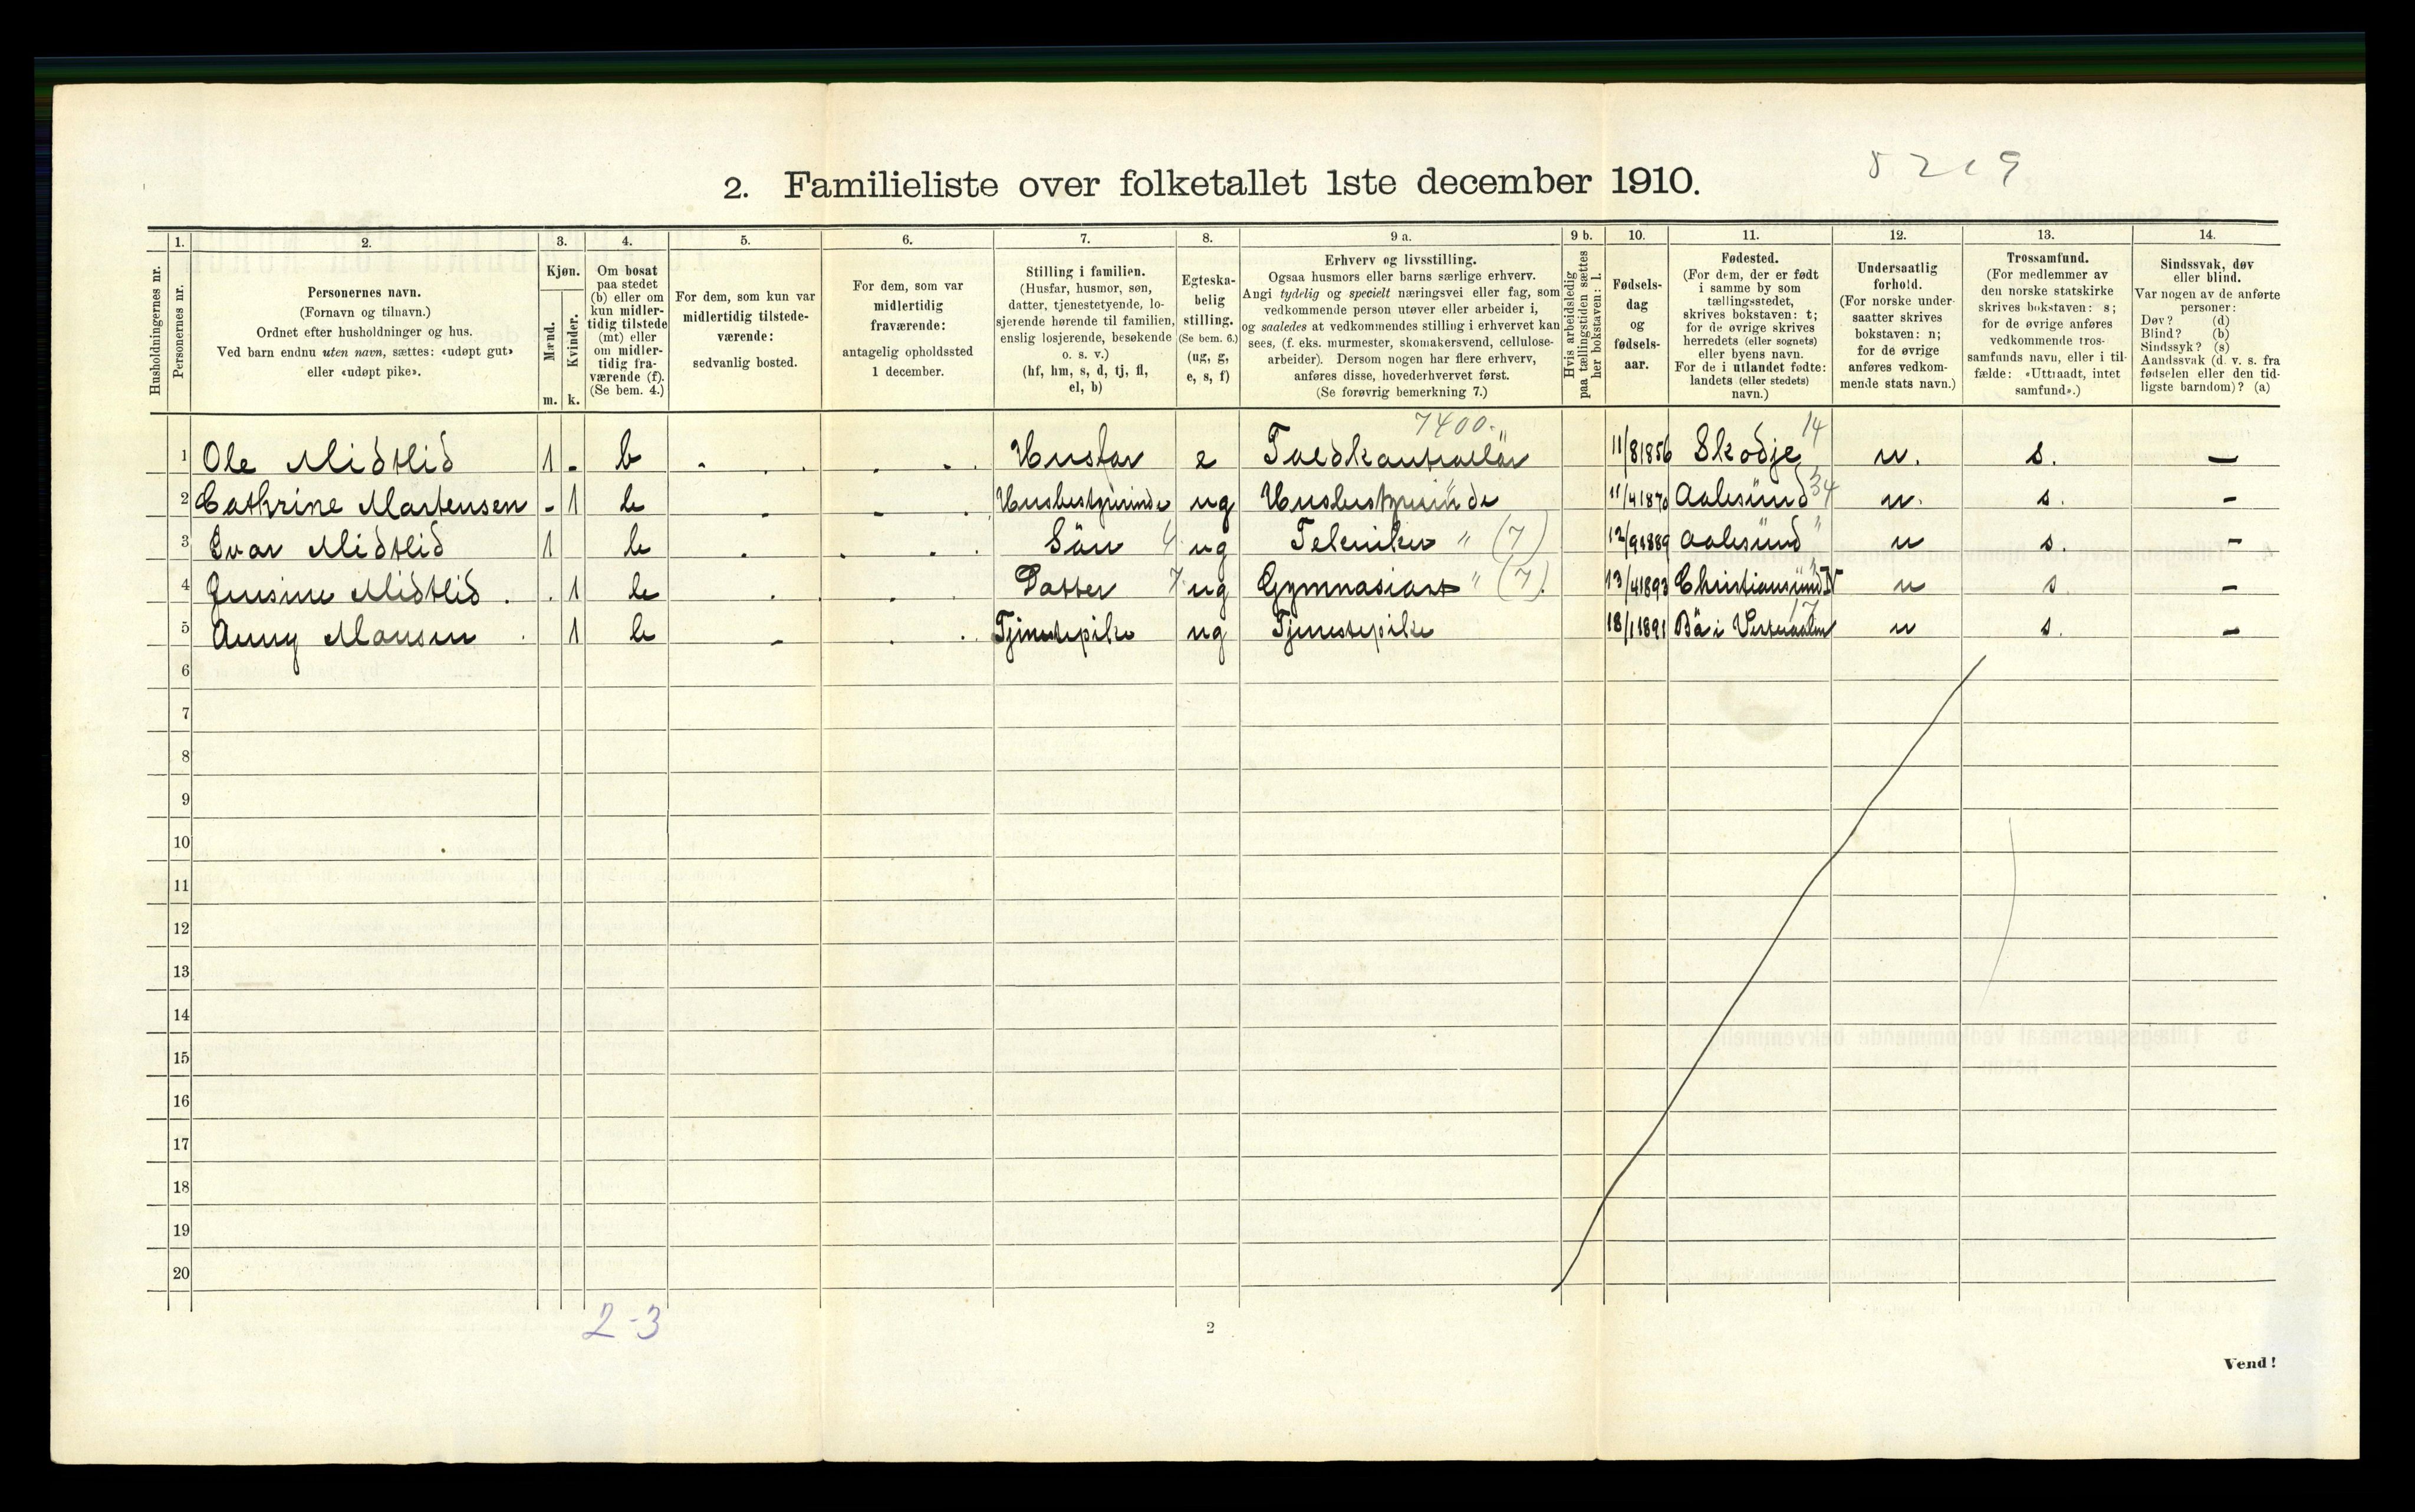 5219
2. Familieliste over folketallet 1ste december 1910.
Husholdningernes nr.
1. Personernes nr.
2. Personernes navn.
(Fornavn og tilnavn.)
Ordnet efter husholdninger og hus.
Ved barn endnu uten navn, sættes: «udøpt gut»
eller «udøpt pike».
3. Kjøn.
Mænd. m.
Kvinder. k.
4. Om bosat
paa stedet
(b) eller om
kun midler-
tidig tilstede
(mt) eller
om midler-
tidig fra-
værende (f).
(Se bem. 4.)
5. For dem, som kun var
midlertidig tilstede-
værende:
sedvanlig bosted.
6. For dem, som var
midlertidig
fraværende:
antagelig opholdssted
1 december.
7. Stilling i familien.
(Husfar, husmor, søn,
datter, tjenestetyende, lo-
sjerende hørende til familien,
enslig losjerende, besøkende
o. s. v.)
(hf, hm, s, d, tj, fl,
el, b)
8. Egteska-
belig
stilling.
(Se bem. 6.)
(ug, g,
e, s, f)
9 a. Erhverv og livsstilling.
Ogsaa husmors eller barns særlige erhverv.
Angi tydelig og specielt næringsvei eller fag, som
vedkommende person utøver eller arbeider i,
og saaledes at vedkommendes stilling i erhvervet kan
sees, (f. eks. murmester, skomakersvend, cellulose-
arbeider). Dersom nogen har flere erhverv,
anføres disse, hovederhvervet først.
(Se forøvrig bemerkning 7.)
9 b. Hvis arbeidsledig
paa tællingstiden sættes
her bokstaven: l.
10. Fødsels-
dag
og
fødsels-
aar.
11. Fødested.
(For dem, der er født
i samme by som
tællingsstedet,
skrives bokstaven: t;
for de øvrige skrives
herredets (eller sognets)
eller byens navn.
For de i utlandet fødte:
landets (eller stedets)
navn.)
12. Undersaatlig
forhold.
(For norske under-
saatter skrives
bokstaven: n;
for de øvrige
anføres vedkom-
mende stats navn.)
13. Trossamfund.
(For medlemmer av
den norske statskirke
skrives bokstaven: s;
for de øvrige anføres
vedkommende tros-
samfunds navn, eller i til-
fælde: «Uttraadt, intet
samfund».)
14. Sindssvak, døv
eller blind.
Var nogen av de anførte
personer:
Døv? (d)
Blind? (b)
Sindssyk? (s)
Aandssvak (d. v. s. fra
fødselen eller den tid-
ligste barndom)? (a)
7400.
1 Ole Midtlid 1 - b Husfar e Toldkontrollör 11/8 1856 Skodje 14 n. s. —
2 Cathrine Martensen - 1 b Husbestyrerinde ug Husbestyrerinde 11/4 1870 Aalesund 34 n. s. -
3 Ivar Midtlid 1 b Sön ug Tekniker " (7) 12/9 1889 Aalesund " n s. -
4 Midtlid . 1 b Datter ug Gymnasiast " (7) 13/4 1893 Christiansund N n s -
5 Anny 1 b Tjenestepike ug Tjenestepike 18/1 1891 Bö i Vesteraalen 17 n s. -
6
7
8
9
10
11
12
13
14
15
16
17
18
19
20
2-3
2
Vend!